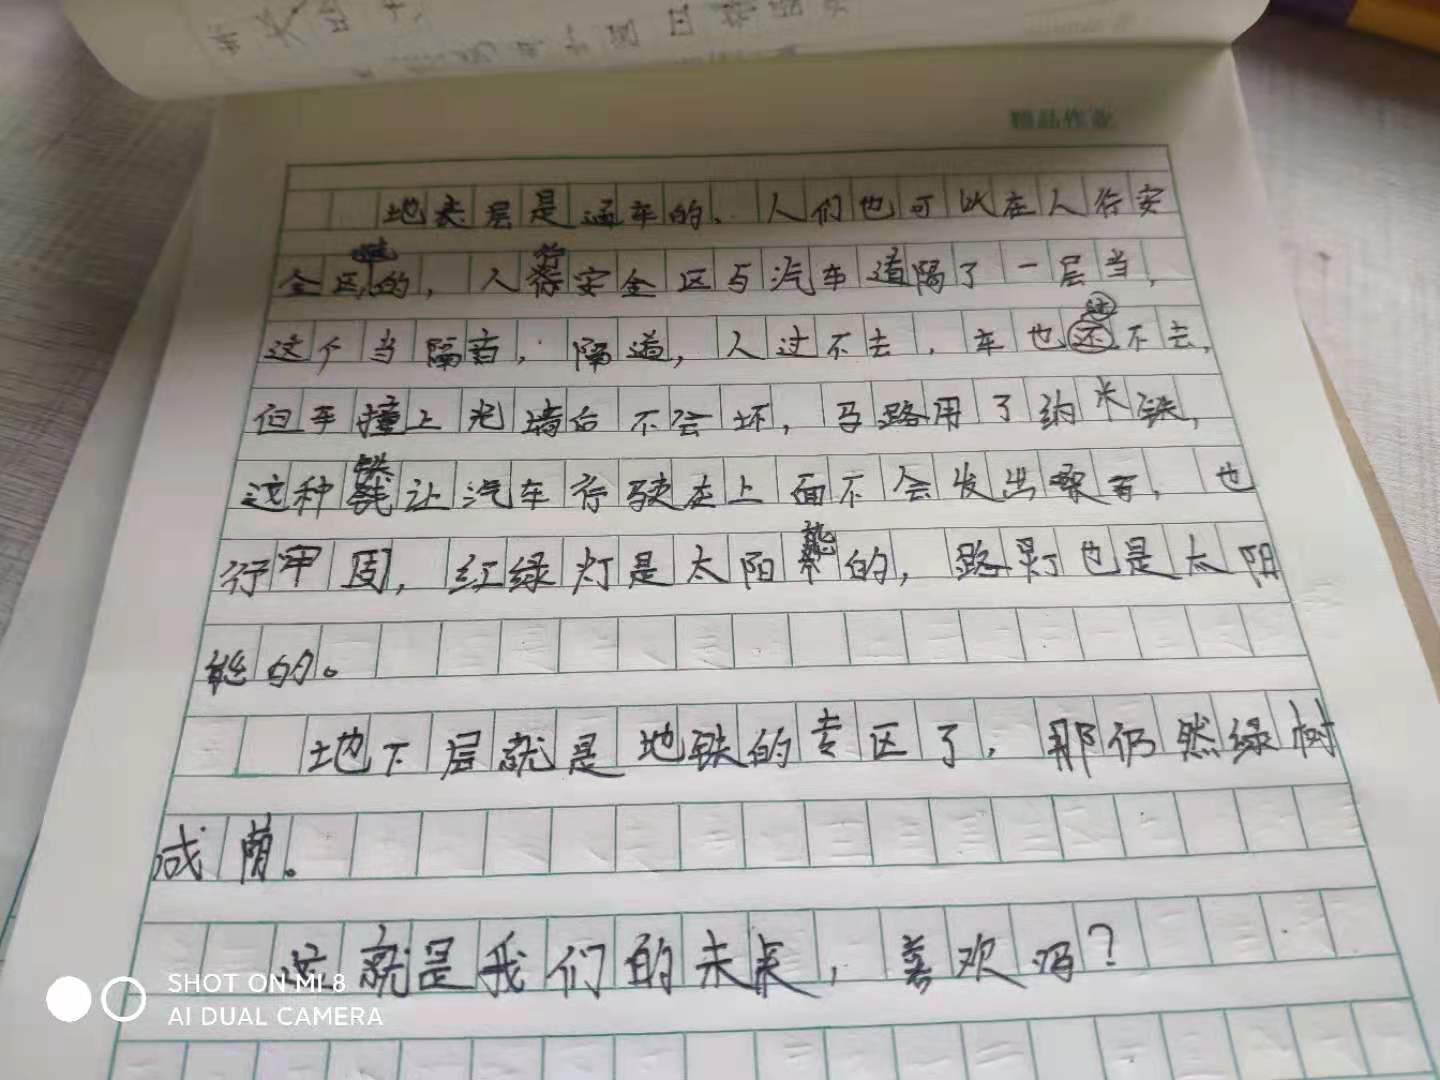 精品作业
地表层是通车的，人们也可以在人行安
全区的，人行安全区与汽车道隔了一层当，
这个当隔音，隔道，人过不去，车也过不去，
但车撞上光墙后不会坏，马路用了纳米铁，
这种铁让汽车行驶在上面不会发出噪音，也
行甲周，红绿灯是太阳能的，路灯也是太阳
能的。
地下层就是地铁的专区了，那仍然绿树
成荫。
这就是我们的未来，喜欢吗？
SHOT ON MI 8
AI DUAL CAMERA